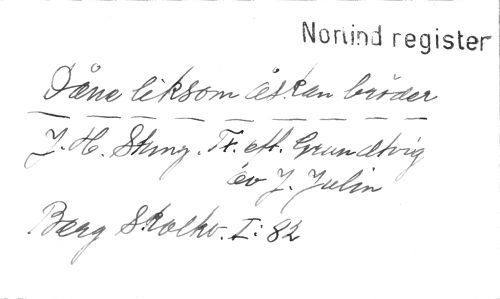 Nordind register
Dåne liksom åskan bröder
J. H. Stuny. Tx. ett. Grundtvig
öv J. Julin
Berg Skolkv. I: 82